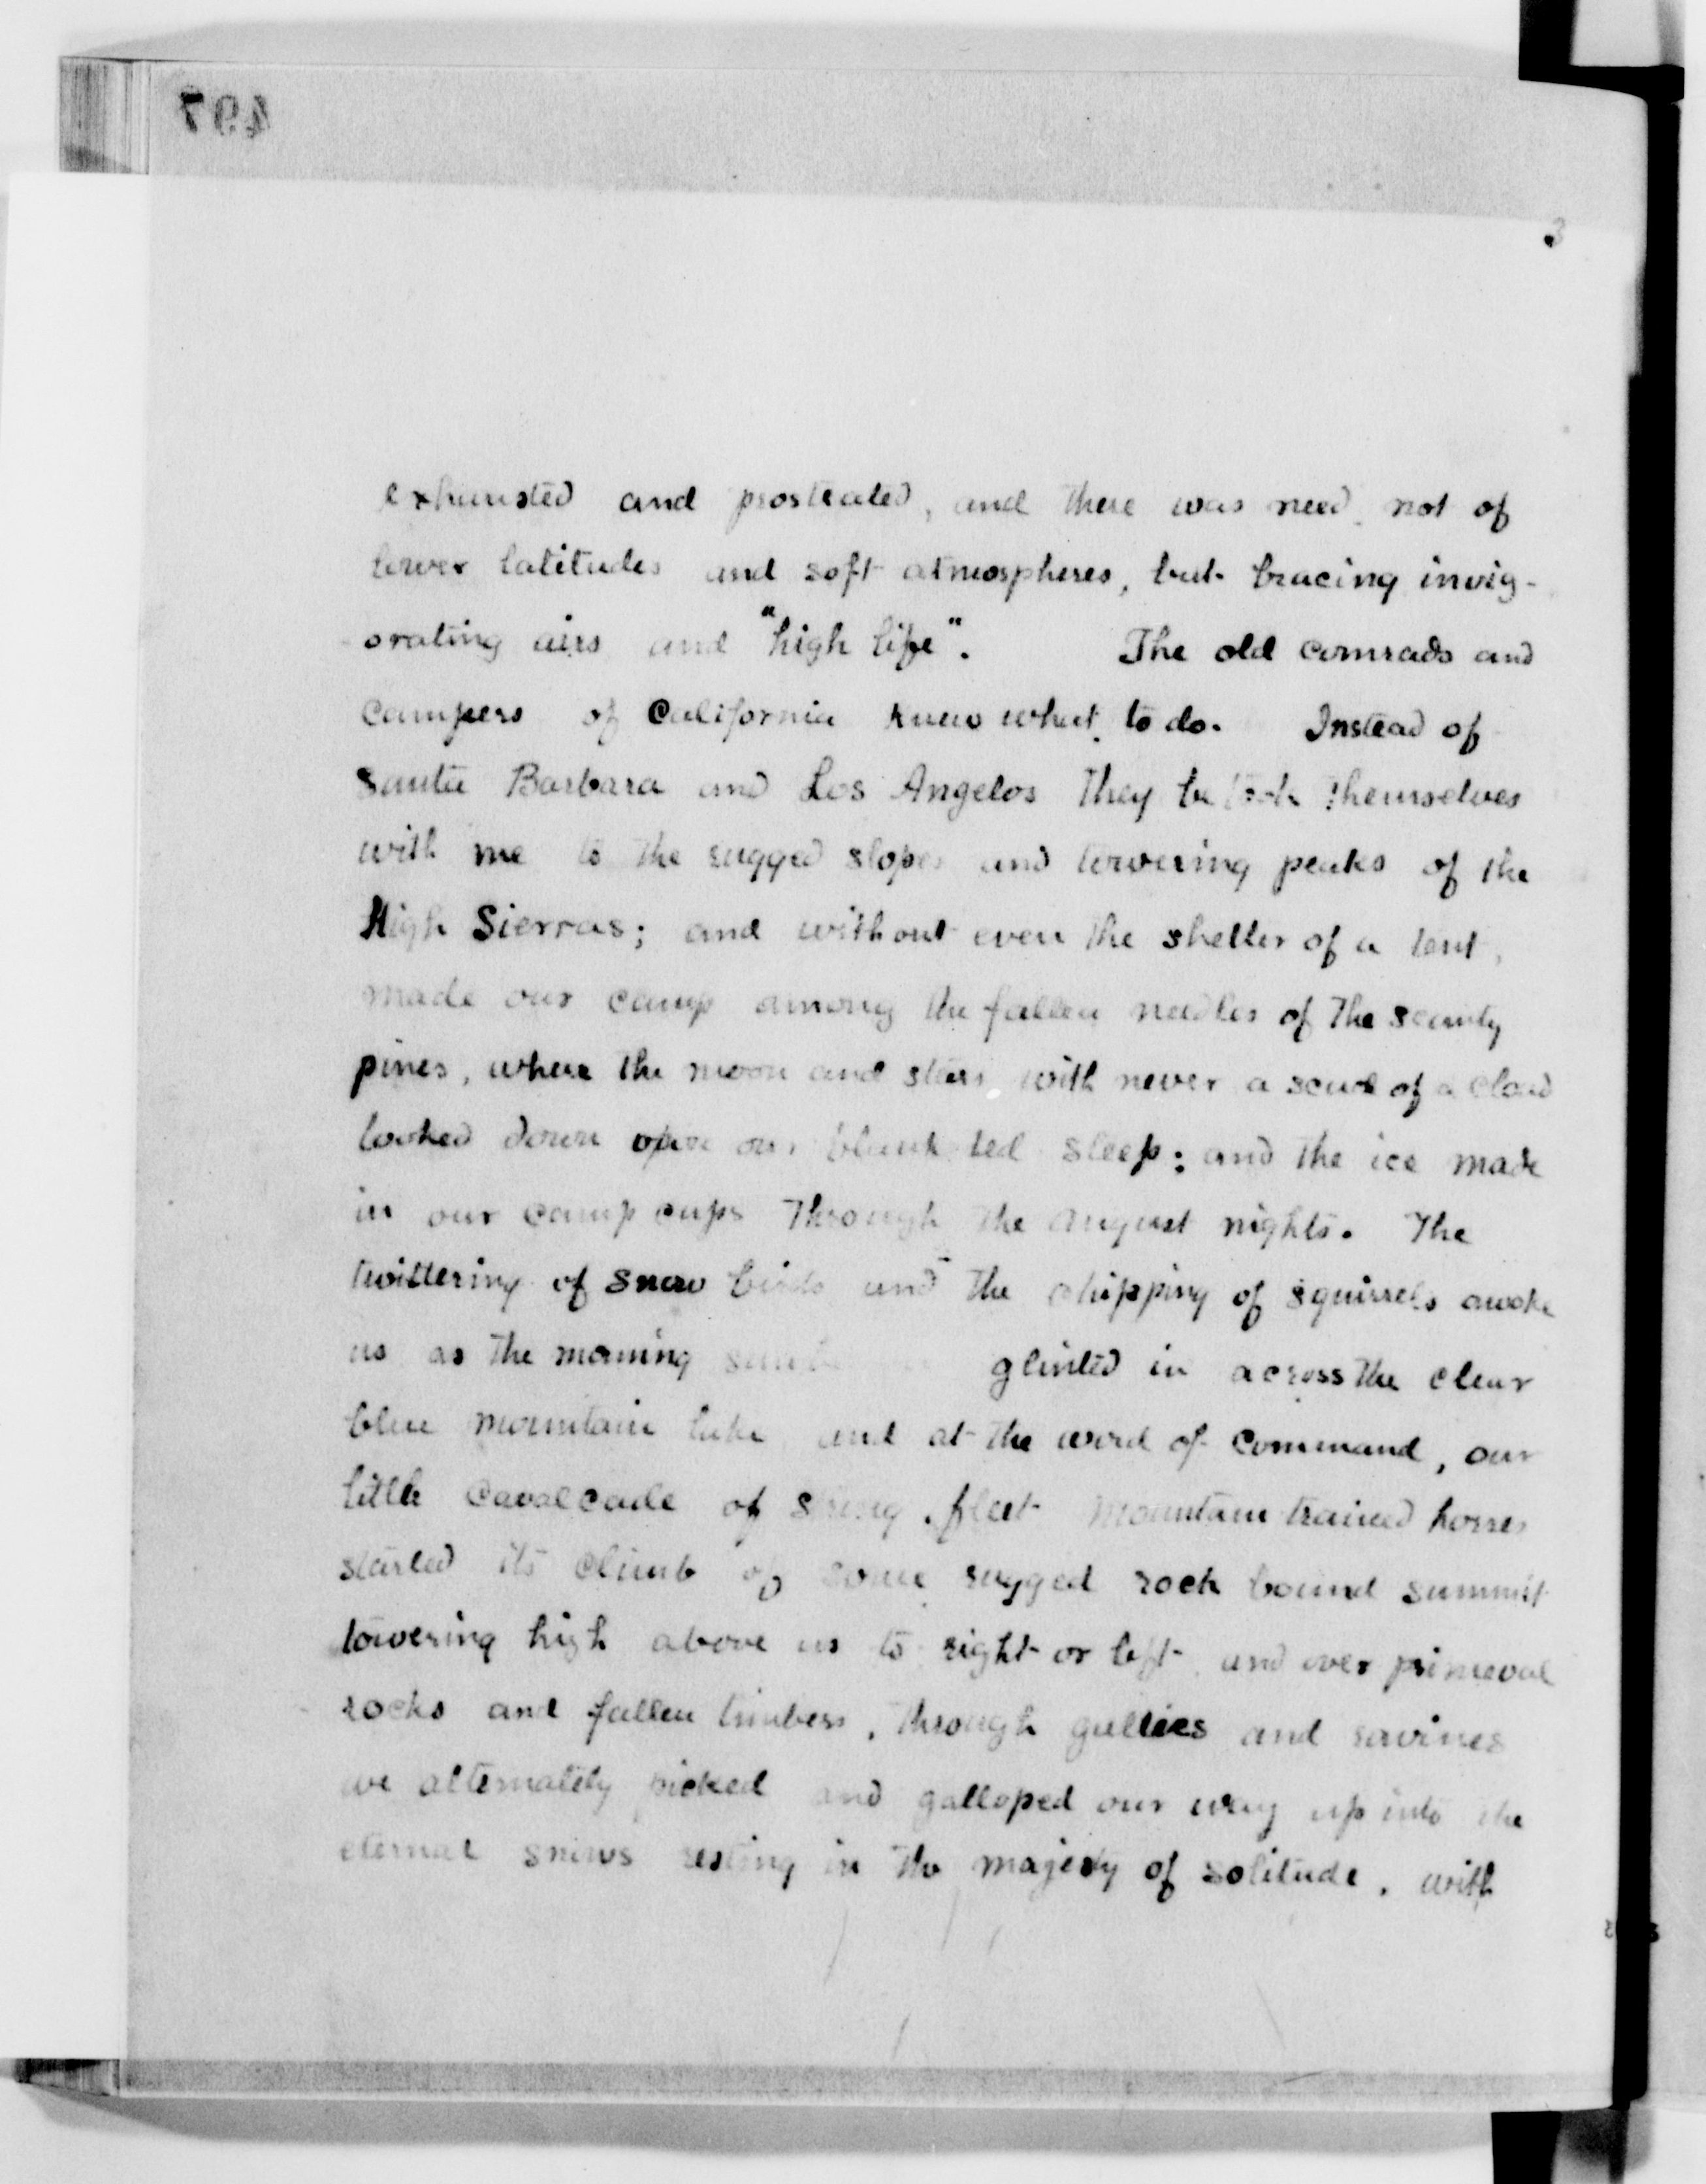 497
3
exhausted and prostrated, and there was need not of
lower latitudes and soft atmospheres, but bracing invig-
orating airs and "high life". The old comrads and
campers of California knew what to do. Instead of
Santa Barbara and Los Angelos they betook themselves
with me to the rugged slopes and towering peaks of the
High Sierras; and without even the shelter of a tent,
made our camp among the fallen needles of the scanty
pines, where the moon and stars with never a scud of a cloud
looked down upon our blanketed sleep; and the ice made
in our camp cups through the August nights. The
twittering of snow birds and the chipping of squirrels awoke
us as the morning glinted in across the clear
blue mountain lake and at the word of command, our
little cavalcade of fleet mountain trained horses
started its climb of some rugged rock bound summit
towering high above us to right or left and over primeval
rocks and fallen timbers, through gullies and ravines
we alternately picked and galloped our way up into the
eternal snows resting in the majesty of solitude, with